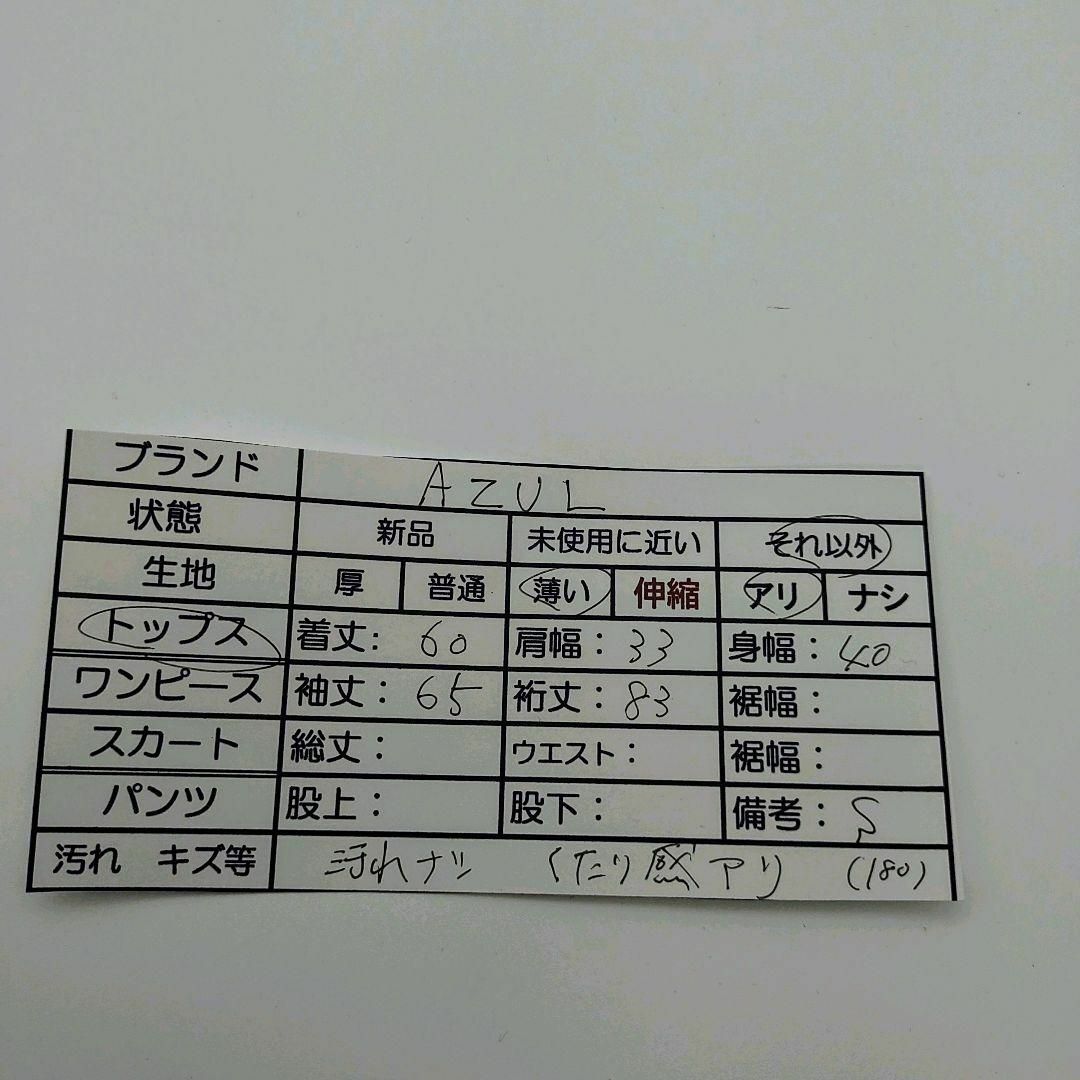 ブランド AZUL
状態 新品 未使用に近い それ以外
生地 厚 普通 薄い 伸縮 アリ ナシ
トップス 着丈: 60 肩幅: 33 身幅: 40
ワンピース 袖丈: 65 裄丈: 83 裾幅:
スカート 総丈: ウエスト: 裾幅:
パンツ 股上: 股下: 備考: S
汚れ キズ等 汚れナシ くたり感アリ (180)